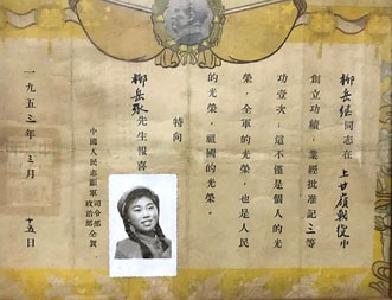 柳岳继同志在上甘嶺戰役中
創立功績，業經批准記三等
功壹次；這不僅是個人的光
榮，全軍的光榮，也是人民
的光榮，祖國的光榮。
特向
柳岳泉先生報喜
中國人民志願軍司令部政治部仝賀
一九五三年三月十五日